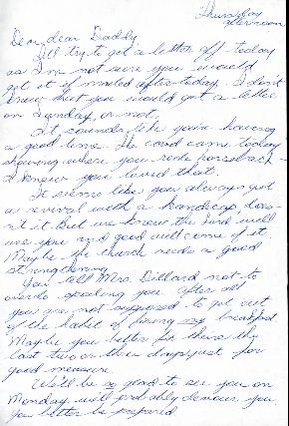 Thursday
afternoon
Dear, dear Daddy,
I'll try to get a letter off today
as I'm not sure you would
get it if mailed after today. I don't
know that you would get a letter
on Sunday, or not.
It sounds like you're having
a good time. The card came today
showing where you rode horseback -
I knew you loved that.
It seems like you always get
a revival with a handicap, does-
n't it. But we know the Lord will
use you and good will come of it.
Maybe the church needs a good
strengthening.
You tell Mrs. Dillard not to
overdo spoiling you after all
you are not supposed to get out
of the habit of fixing my breakfast
Maybe you better fix theirs the
last two or three days just for
good measure.
We'll be so glad to see you on
Monday we'll probably devour you.
You better be prepared